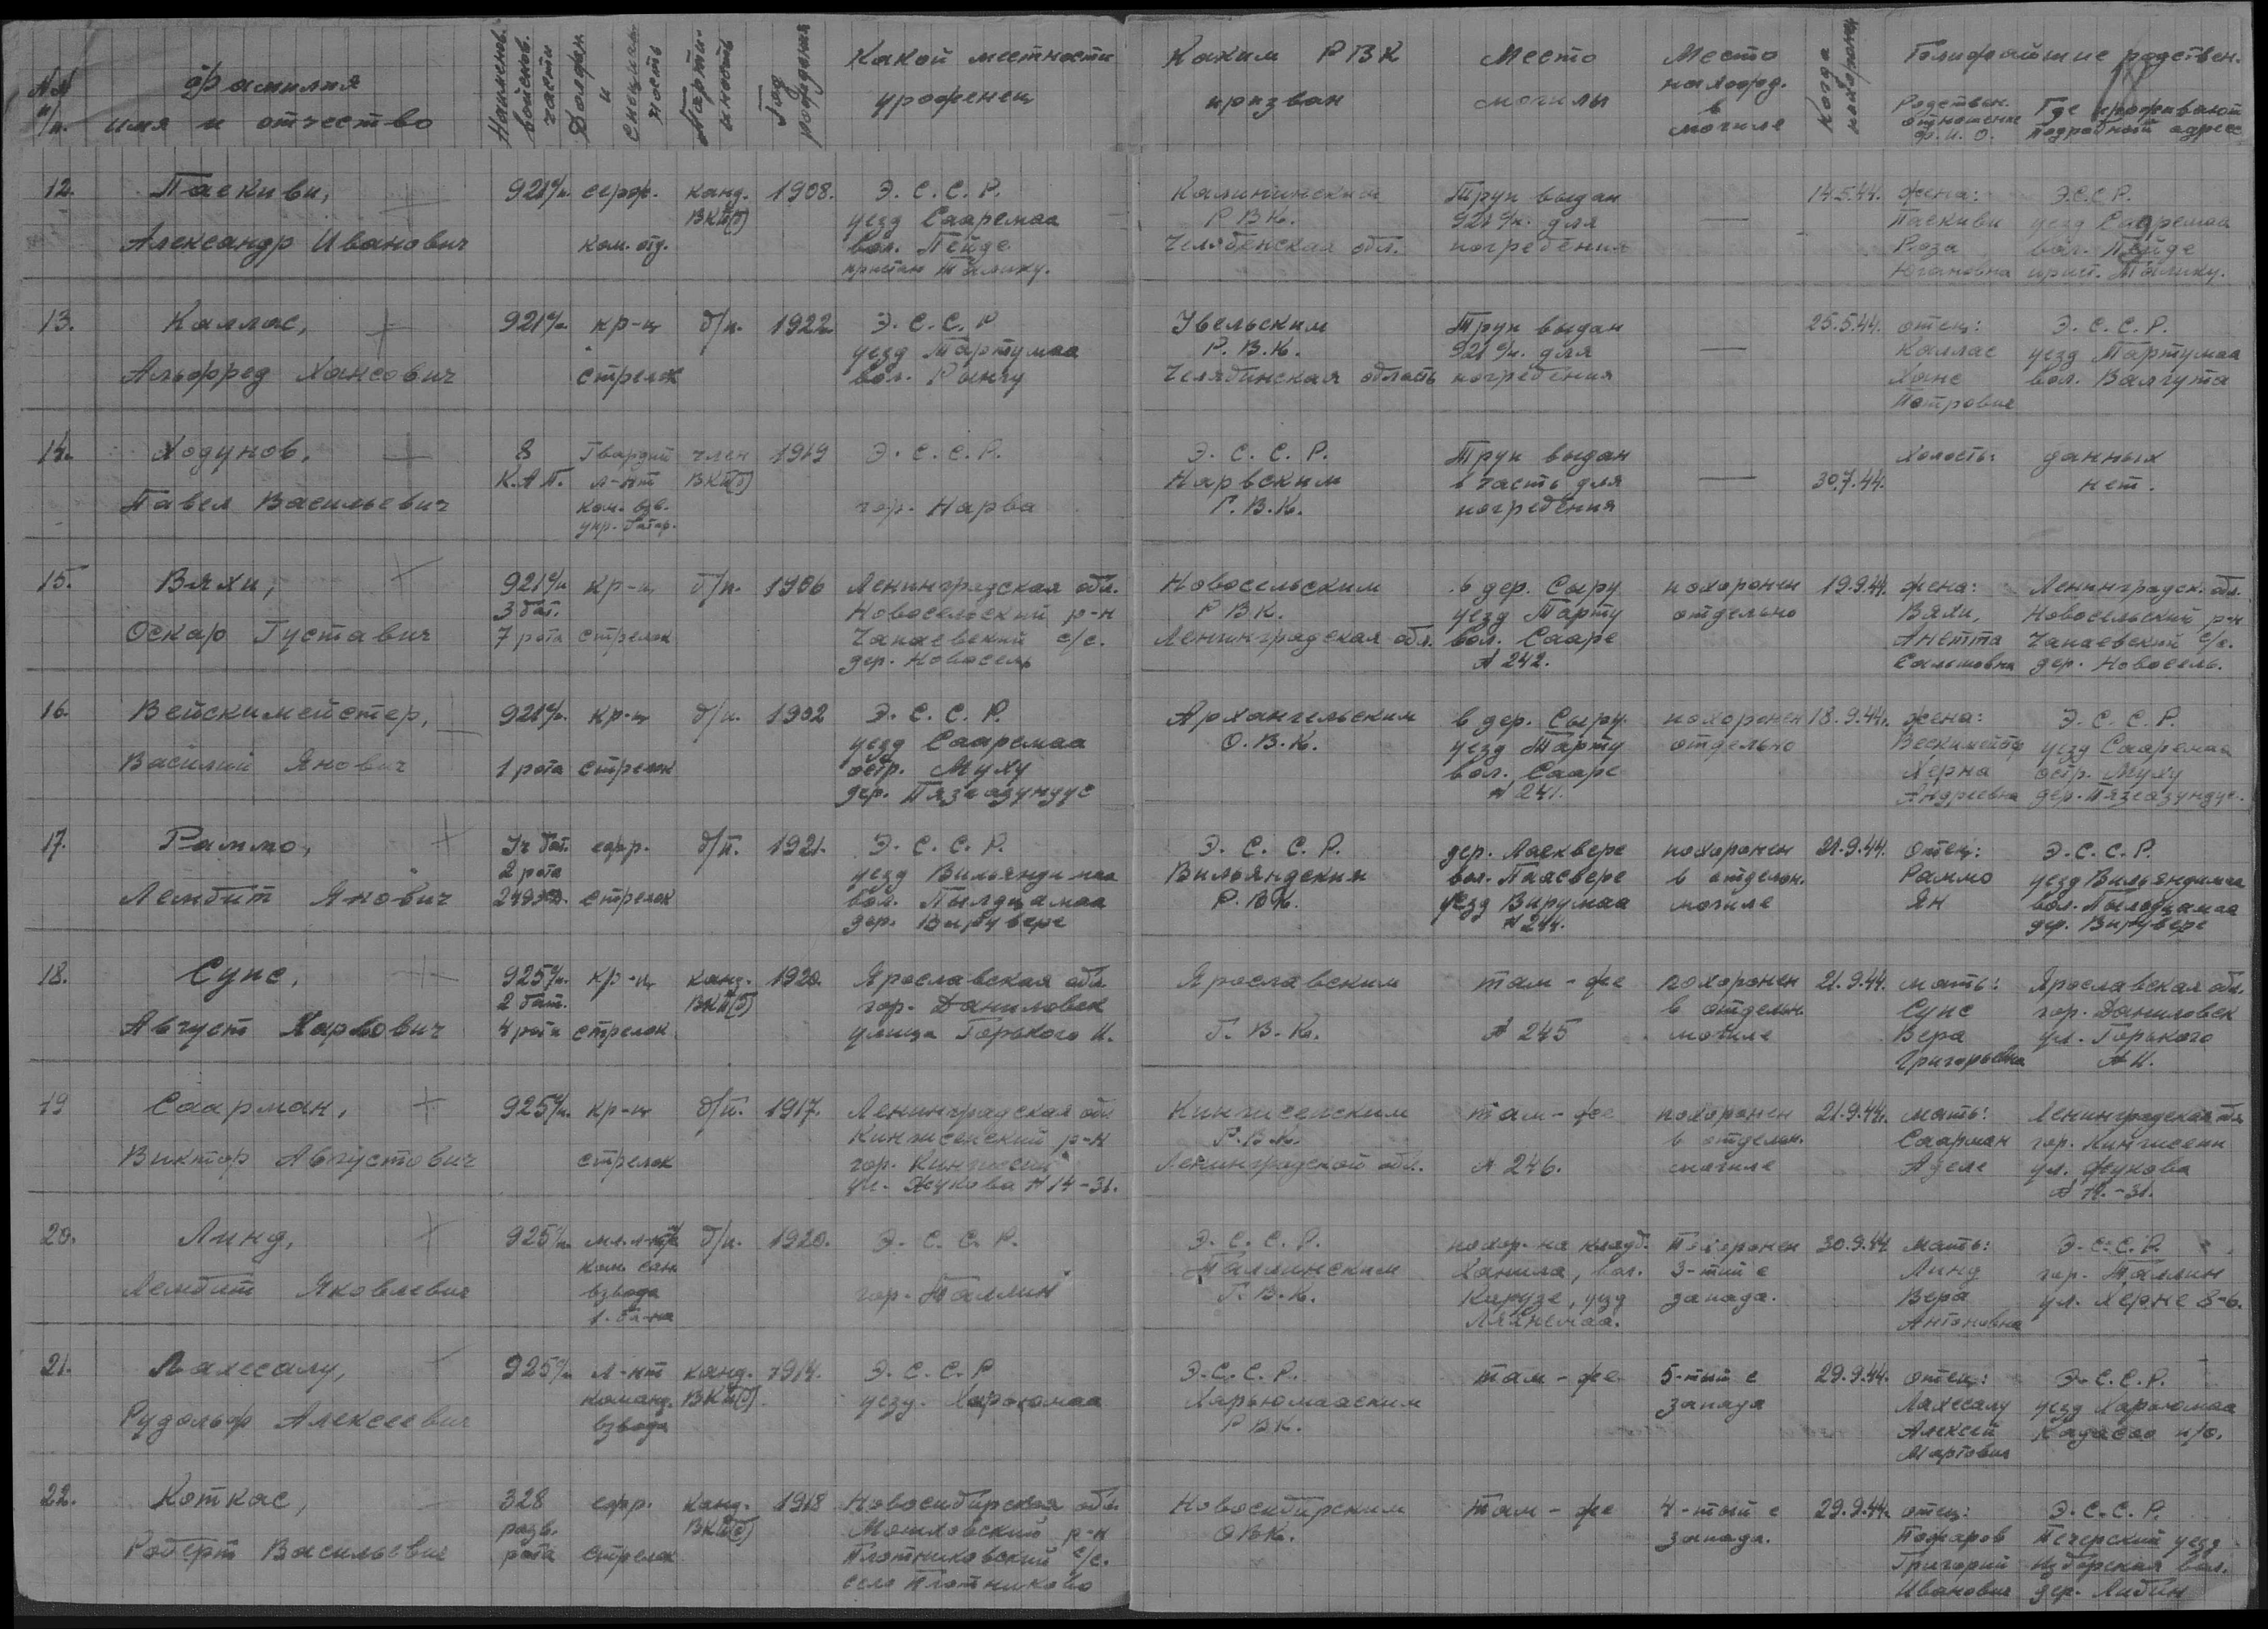 NN п/п.
Фамилия имя и отчество
Наименов. войсков. части
Должн. и специаль ность
Парти- йность
Год рождения
Какой местности уроженец
Каким РВК призван
Место могилы
Место нахожд. в могиле
Когда похоронен
Ближайшие родствен.
Родствен. отношение ф. и. о.
Где проживают подробный адрес
12. Паскиви, 921 сп. серж. канд. 1908. Э. С. С. Р. Калининским Труп выдан — 14.5.44. жена: Э.С.С.Р.
ВКП(б) уезд Сааремаа Р.В.К. 921 сп. для Паскиви уезд Сааремаа
Александр Иванович ком. отд. вол. Пейде Челябенская обл. погребения Роза вол. Пейде
пристан Талику. Югановна прист. Талику.
13. Каллас, 921 сп. кр-ц б/п. 1922 Э. С. С. Р Увельским Труп выдан 25.5.44. отец: Э. С. С. Р.
уезд Тартумаа Р. В. К. 921 сп. для — Каллас уезд Тартумаа
Альфред Хансович стрелок вол. Рынгу Челябинская область погребения Ханс вол. Валгута
Петрович
14. Ходунов, 8 Гвардии член 1919 Э. С. С. Р. Э. С. С. Р. Труп выдан Холость: данных
К.А.П. л-нт ВКП(б) Нарвским в часть для — 30.7.44. нет.
Павел Васильевич ком. взв. гор. Нарва Г. В. К. погребения
упр. батар.
15. Вяхи, 921 сп кр-ц б/п. 1906 Ленинградская обл. Новосельским в дер. Сыру похоронен 19.9.44. жена: Ленинградск. обл.
3 бат. Новосельский р-н Р В К. уезд Тарту отдельно Вяхи, Новосельский р-н
Оскар Густавич 7 рота стрелок Чапаевский с/с. Ленинградская обл. вол. Сааре Анетта Чапаевский с/с.
дер. Новосель N 242. дер. Новосель.
16. Вейскимейстер, 921 сп. кр-ц б/п. 1902 Э. С. С. Р. Архангельским в дер. Сыру похоронен 18.9.44. жена: Э. С. С. Р.
уезд Сааремаа О. В. К. уезд Тарту отдельно уезд Сааремаа
Василий Янович 1 рота стрелок остр. Муху вол. Сааре Херна остр. Муху
дер. Пязеазундус N 241. Андреевна дер. Пязеазундус.
17. Раммо, Уч бат. ефр. б/п. 1921. Э. С. С. Р. Э. С. С. Р. дер. Лаеквере похоронен 21.9.44. Отец: Э. С. С. Р.
2 рота уезд Вильяндимаа Вильяндским вол. Паасвере в отдельн. Раммо уезд Вильяндимаа
Лембит Янович 249 стрелок вол. Пылдцамаа Р. В К. уезд Вирумаа могиле Ян вол. Пылдцамаа
дер. Вирувере N 244. дер. Вирувере
18. Супс, 925 сп. кр-ц канд. 1920. Ярославская обл. Ярославским там-же похоронен 21.9.44. мать: Ярославская обл.
2 бат. ВКП(б) гор. Даниловск в отдельн. Супс гор. Даниловск
Август Карлович 4 рота стрелок улица Горького 11. Г. В. К. N 245 могиле Вера ул. Горького
Григорьевна N 11.
19 Саарман, 925 сп. кр-ц б/п. 1917. Ленинградская обл Кингисепским там-же похоронен 21.9.44. мать: Ленинградская обл
Кингисепский р-н Р.В.К. в отдельн. Саарман гор. Кингисепп
Виктор Августович стрелок гор. Кингисепп Ленинградской обл. N 246. могиле Аделе ул. Жукова
ул. Жукова N 14-31. N 14.-31.
20. Линд, 925 сп. мл. л-нт б/п. 1920. Э. С. С. Р. Э. С. С. Р. похор. на кладб. Похоронен 30.9.44 Мать: Э. С. С. Р.
ком. сан. Таллинским Ханила, вол. 3-тий с Линд гор. Таллин
Лембит Яковлевич взвода гор. Таллин Г. В. К. Карузе, уезд запада. Вера ул. Херне 8-6.
1. б-на Ляянемаа. Антоновна
21. Лахесалу, 925 сп л-нт канд. 1914. Э. С. С. Р Э.С.С.Р. там-же 5-тый с 29.9.44. Отец: Э. С. С. Р.
команд. ВКП(б) уезд. Харьюмаа Харьюмааским запада Лахесалу уезд Харьюмаа
Рудольф Алексеевич взвода Р В К. Алексей п/о.
Мартович
22. Коткас, 328 ефр. Канд. 1918 Новосибирская обл. Новосибирским там-же 4-тый с 29.9.44. отец: Э. С. С. Р.
разв. ВКП(б) Мошковский р-н О В К. запада. Пожаров Печерский уезд
Роберт Васильевич рота стрелок Плотниковский с/с. Григорий Изборская вол.
село Плотниково Иванович дер. Лыбин